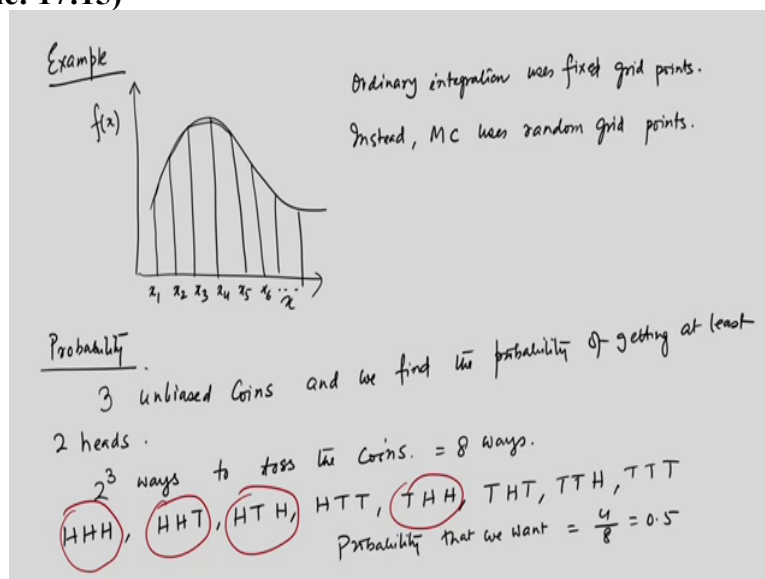 Example
f(x)
Ordinary integration uses fixed grid points.
Instead, MC uses random grid points.
x₁ x₂ x₃ x₄ x₅ x₆ ....
x
Probability
3 unbiased Coins and we find the probability of getting at least
2 heads.
2³ ways to toss the Coins. = 8 ways.
HHH, HHT, HTH, HTT, THH, THT, TTH, TTT
Probability that we want = 4/8 = 0.5